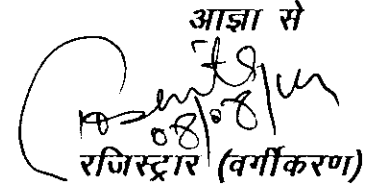 आज्ञा से
08/08/14
रजिस्ट्रार (वर्गीकरण)